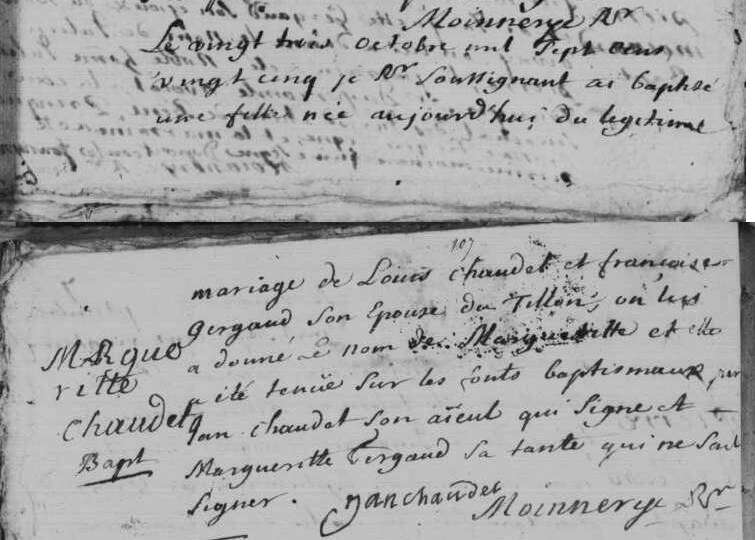 Moinnerye Rr
Le vingt trois octobre mil Sept cens
vingt cinq je Rr Soussignant ai baptisé
une fille née aujourd'hui du legitime
107
mariage de Louis chaudet et françoise
gergaud son Epouse du Tillon, on lui
a donné Le nom de Margueritte et elle
a été tenüe sur les fonts baptismaux par
Jan chaudet son aïeul qui signe et
Margueritte Gergaud sa tante qui ne sait
signer.
MARgue
ritte
chaudet
Bapt
Jan chaudet
Moinnerye Rr